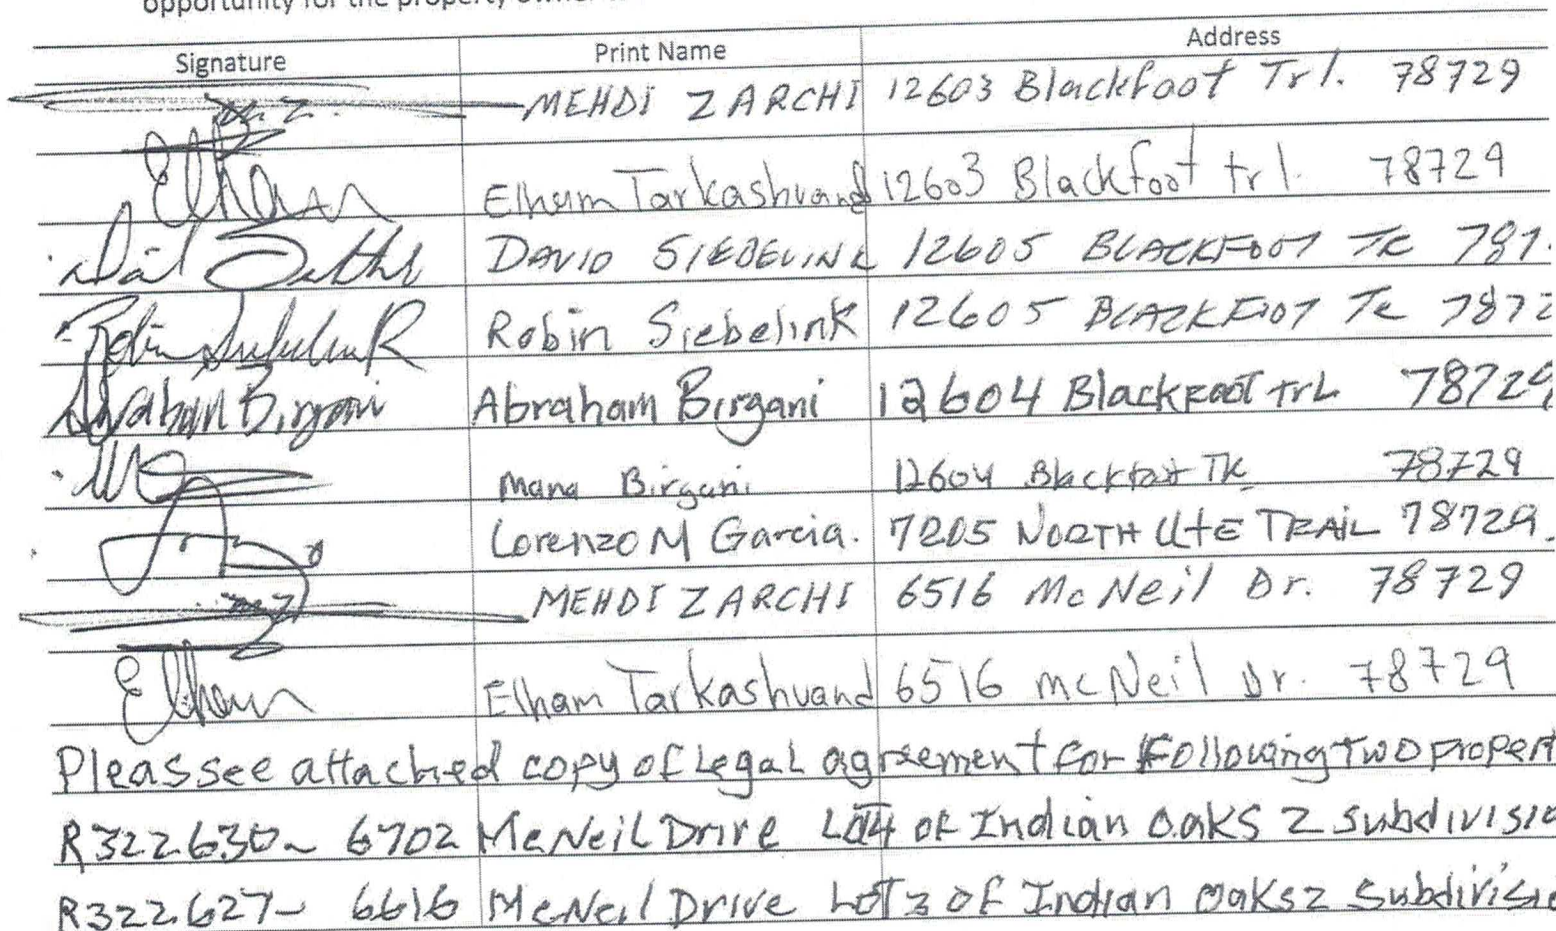 opportunity for the property owner
Signature Print Name Address
M.Z. MEHDI ZARCHI 12603 Blackfoot Trl. 78729
Elham Elham Tarkashvand 12603 Blackfoot trl. 78729
DAVID SIEBELINK 12605 BLACKFOOT TR 787
Robin Siebelink Robin Siebelink 12605 BLACKFOOT TR 7872
Abraham Birgani Abraham Birgani 12604 Blackfoot trL 78729
Mana Birgani 12604 Blackfoot TR 78729
Lorenzo M Garcia. 7205 NORTH UtE TRAIL 78729.
M.Z. MEHDI ZARCHI 6516 McNeil Dr. 78729
Elham Elham Tarkashvand 6516 mcNeil Dr. 78729
Pleas see attached copy of Legal agreement for Following two propert
R322630~ 6702 McNeil Drive Lot4 of Indian Oaks 2 subdivisio
R322627~ 6616 McNeil Drive LoT3 of Indian Oaks 2 Subdivisio